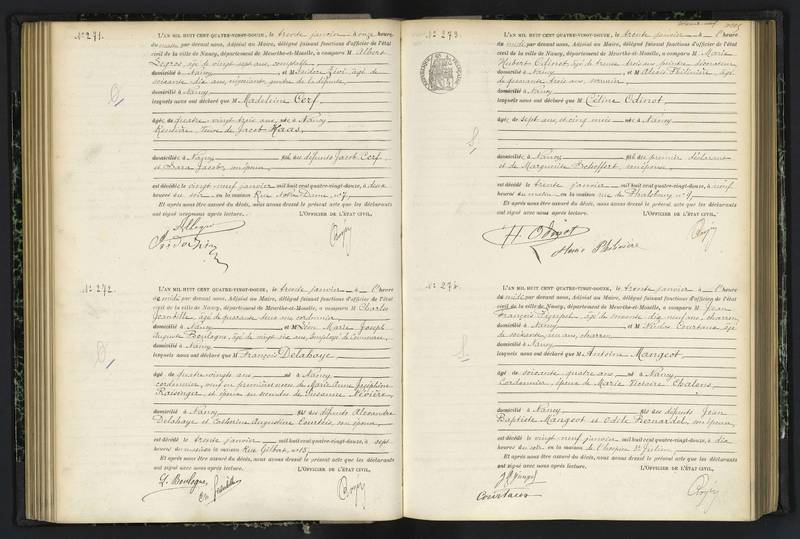 N° 271.
L'AN MIL HUIT CENT QUATRE-VINGT-DOUZE, le trente janvier à onze heures
du matin par devant nous, Adjoint au Maire, délégué faisant fonctions d'officier de l'état
civil de la ville de Nancy, département de Meurthe-et-Moselle, a comparu M Albert
Legros, âgé de vingt sept ans, comptable
domicilié à Nancy et M Isidore Zivi, âgé de
soixante dix ans, négociant, gendre de la défunte
domicilié à Nancy
lesquels nous ont déclaré que M Madeleine Cerf
âgée de quatre vingt trois ans, née à Nancy
Rentière, Veuve de Jacob Haas,
domiciliée à Nancy fille des défunts Jacob Cerf
et Sara Jacob, son épouse
est décédée le vingt neuf janvier mil huit cent quatre-vingt-douze, à deux
heures du soir en la maison Rue Notre Dame, n° 7
Et après nous être assuré du décès, nous avons dressé le présent acte que les déclarants
ont signé avec nous après lecture. L'OFFICIER DE L'ÉTAT CIVIL,
N° 272.
L'AN MIL HUIT CENT QUATRE-VINGT-DOUZE, le trente janvier à l'heure
du midi par devant nous, Adjoint au Maire, délégué faisant fonctions d'officier de l'état
civil de la ville de Nancy, département de Meurthe-et-Moselle, a comparu M Charles
âgé de quarante deux ans, cordonnier
domicilié à Nancy et M Léon Marie Joseph
Auguste Boulogne, âgé de vingt six ans, employé de commerce
domicilié à Nancy
lesquels nous ont déclaré que M François Delahaye
âgé de quatre vingts ans né à Nancy
cordonnier, veuf en premières noces de Marie Anne Joséphine
Raisinger et époux en secondes de Susanne
domicilié à Nancy fils des défunts Alexandre
Delahaye et Catherine Augustine Courtois, son épouse
est décédé le trente janvier mil huit cent quatre-vingt-douze, à sept
heures du matin en la maison Rue Gilbert, n° 15
Et après nous être assuré du décès, nous avons dressé le présent acte que les déclarants
ont signé avec nous après lecture. L'OFFICIER DE L'ÉTAT CIVIL,
L. Boulogne
N° 273.
L'AN MIL HUIT CENT QUATRE-VINGT-DOUZE, le trente janvier à l'heure
du midi par devant nous, Adjoint au Maire, délégué faisant fonctions d'officier de l'état
civil de la ville de Nancy, département de Meurthe-et-Moselle, a comparu M Marie
Hubert Odinot, âgé de trente trois ans, peintre décorateur
domicilié à Nancy et M Alexis Philinière, âgé
de quarante trois ans,
domicilié à Nancy
lesquels nous ont déclaré que M Céline Odinot
âgée de sept ans, et cinq mois née à Nancy
domiciliée à Nancy fille du premier déclarant
et de Marguerite Schoffert, son épouse
est décédée le trente janvier mil huit cent quatre-vingt-douze, à neuf
heures du matin en la maison rue de Phalsbourg n° 9
Et après nous être assuré du décès, nous avons dressé le présent acte que les déclarants
ont signé avec nous après lecture. L'OFFICIER DE L'ÉTAT CIVIL,
H Odinot
N° 274.
L'AN MIL HUIT CENT QUATRE-VINGT-DOUZE, le trente janvier à l'heure
du midi par devant nous, Adjoint au Maire, délégué faisant fonctions d'officier de l'état
civil de la ville de Nancy, département de Meurthe-et-Moselle, a comparu M Jean
François âgé de soixante dix neuf ans, charron
domicilié à Nancy et M Nicolas Courtaux, âgé
de soixante un ans, charron
domicilié à Nancy
lesquels nous ont déclaré que M Antoine Mangeot
âgé de soixante quatre ans né à Nancy
Cordonnier, époux de Marie Victoire Chalons
domicilié à Nancy fils des défunts Jean
Baptiste Mangeot et Odile Renardet, son épouse
est décédé le vingt neuf janvier mil huit cent quatre-vingt-douze, à dix
heures du soir en la maison de l'hospice St Julien
Et après nous être assuré du décès, nous avons dressé le présent acte que les déclarants
ont signé avec nous après lecture. L'OFFICIER DE L'ÉTAT CIVIL,
Courtaux